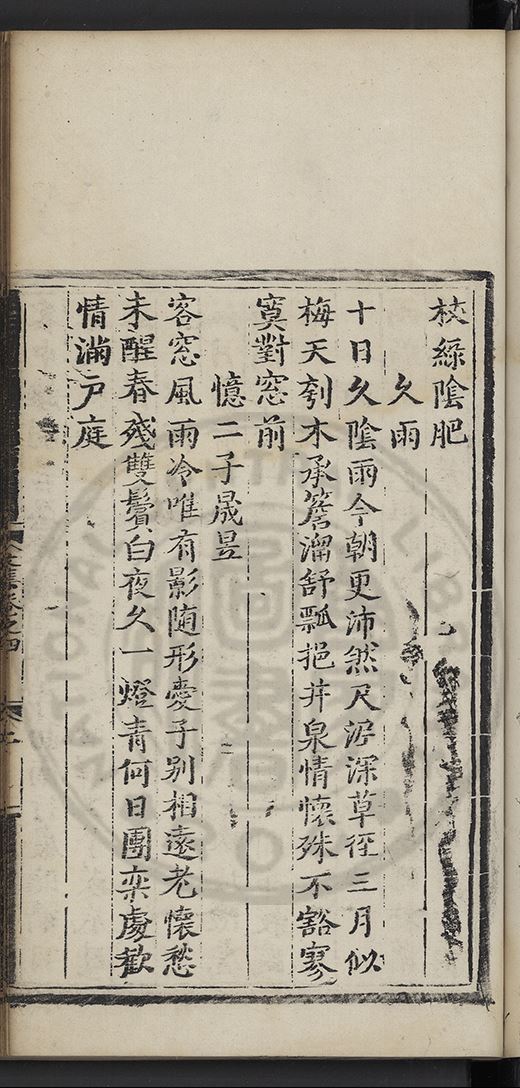 枝綠陰肥
久雨
十日久陰雨今朝更沛然尺泥深草徑三月似
梅天刳木承簷溜舒瓢挹井泉情懷殊不豁寥
寞對窓前
憶二子晟昱
客窓風雨冷唯有影随形愛子别相遠老懷愁
未醒春殘雙鬢白夜久一燈青何日團欒處歡
情滿戶庭